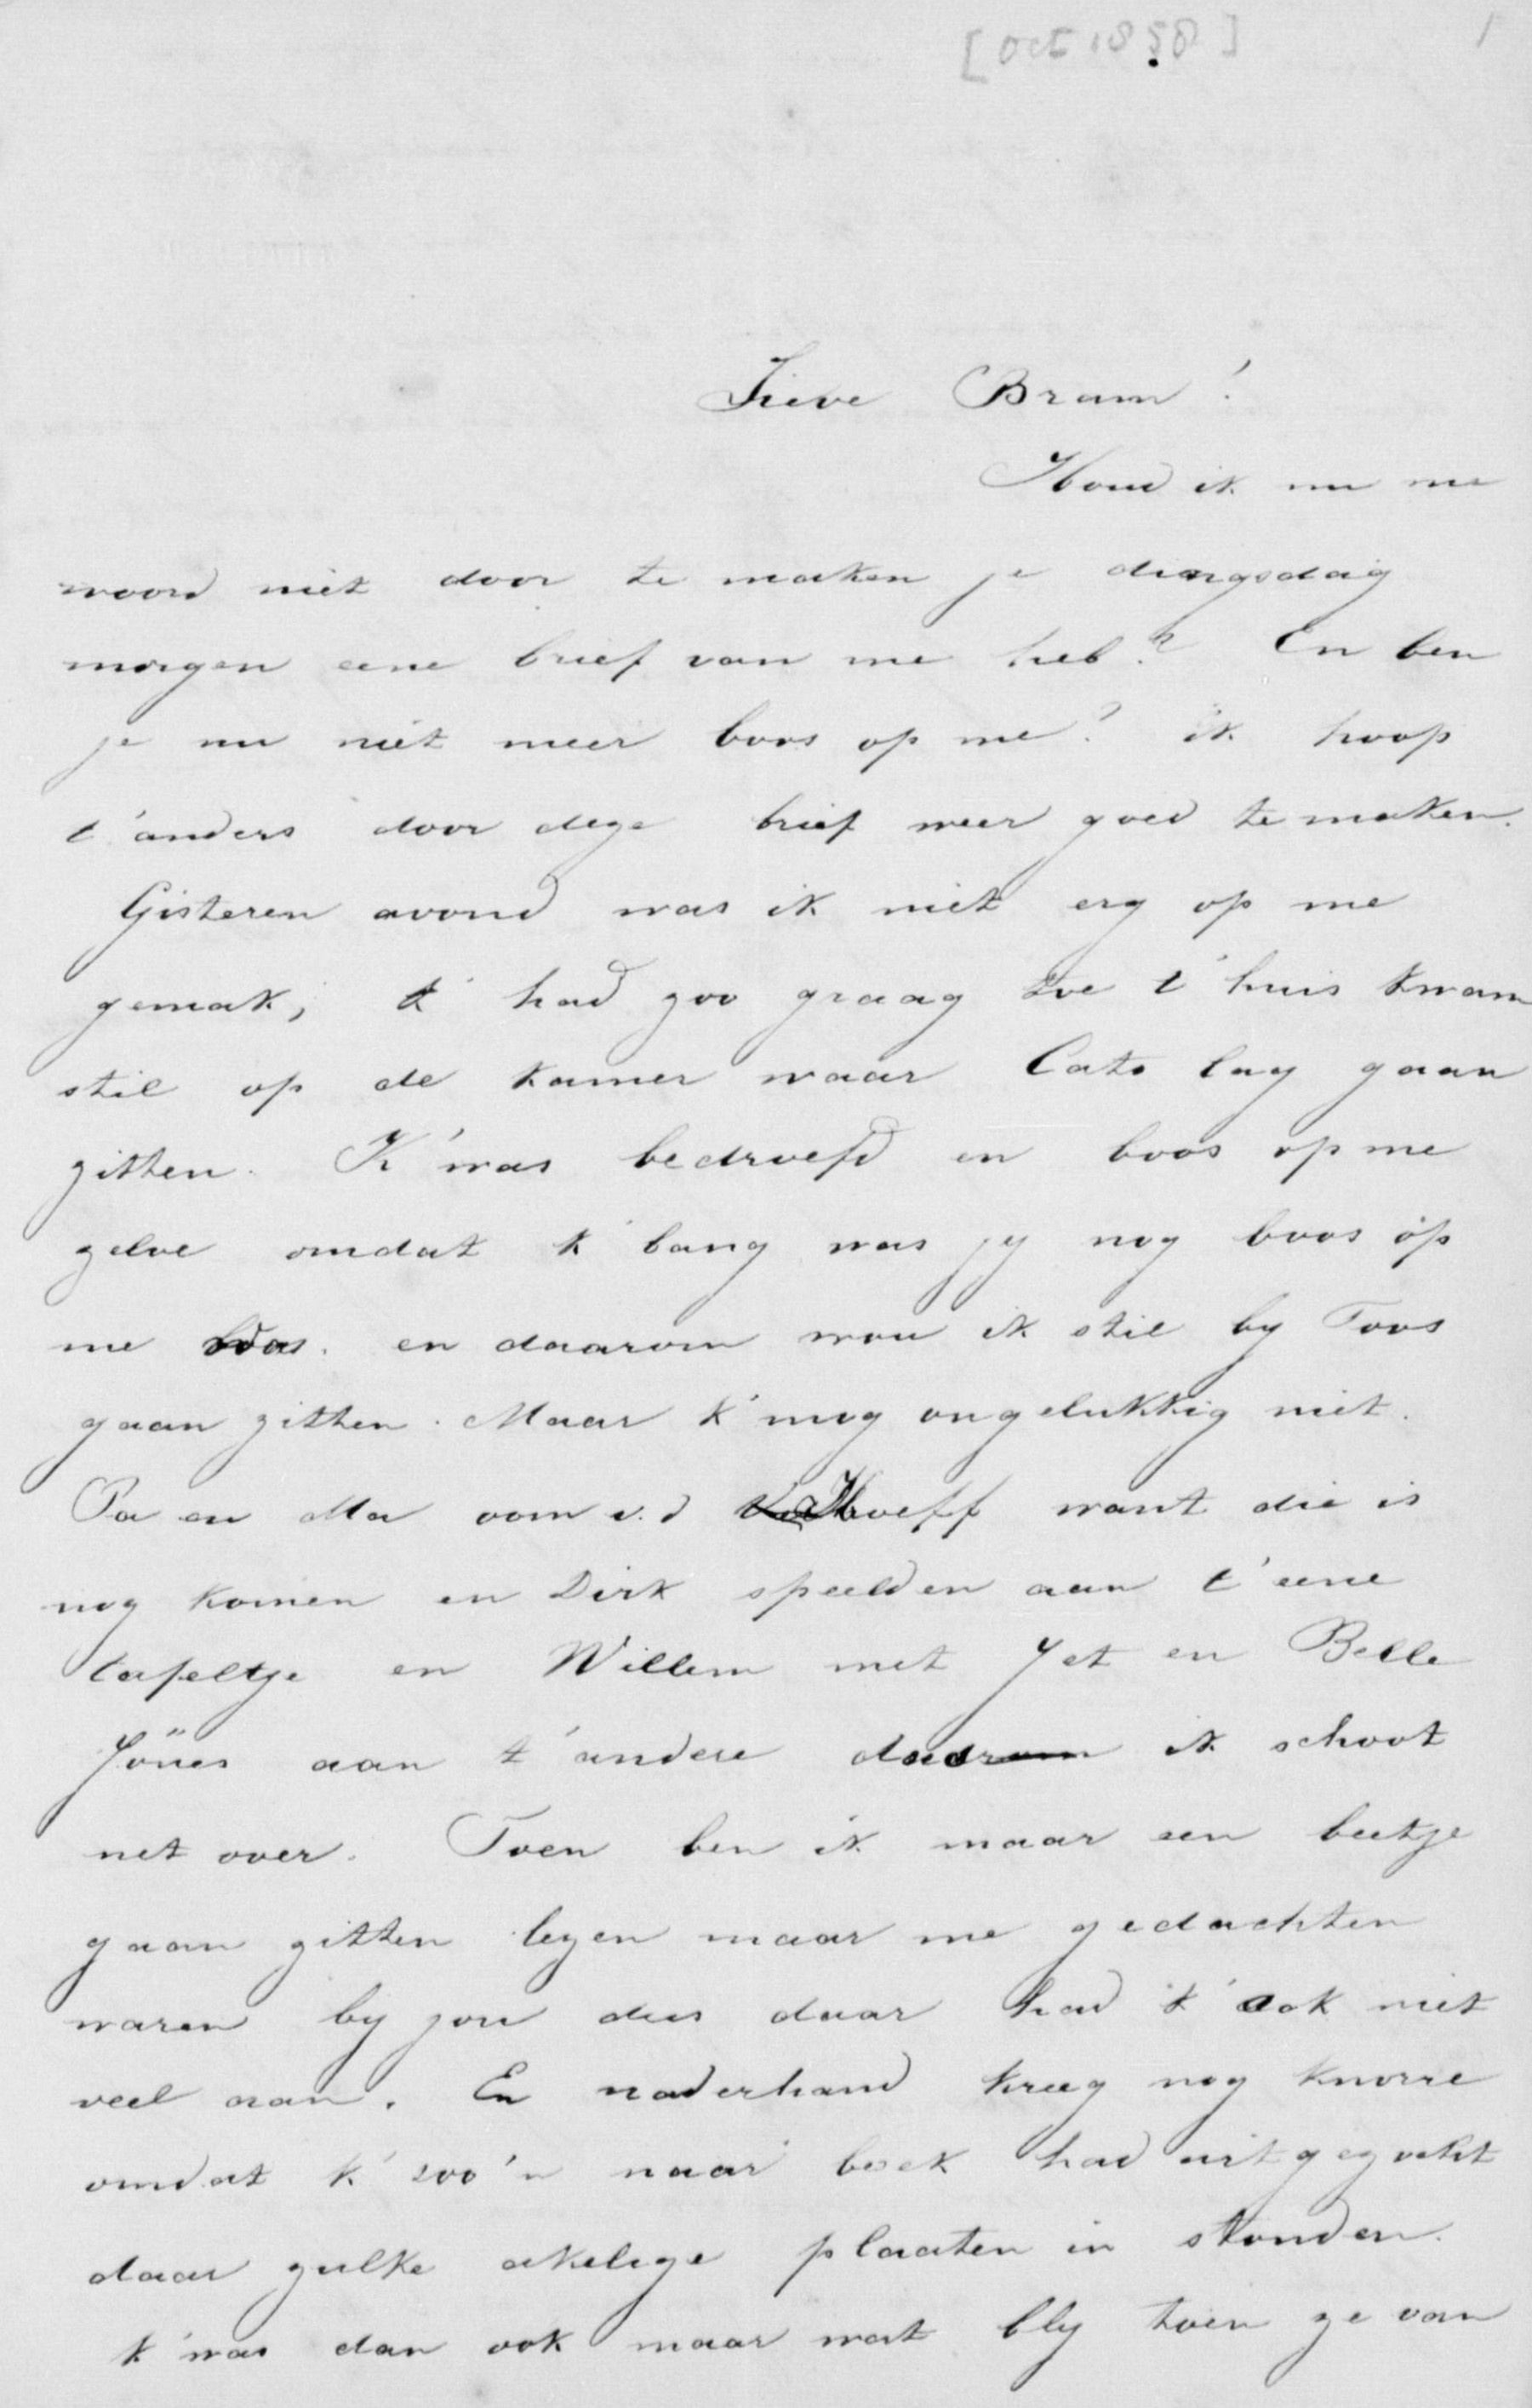 [Oct 1858] 1
Lieve Bram!
Houd ik nu me
woord niet door te maken je dingsdag
morgen eene brief van me heb? En ben
je nu niet meer boos op me? ik hoop
t'anders door deze brief weer goed te maken.
Gisteren avond was ik niet erg op me
gemak, k' had zoo graag toe t'huis kwam
stil op de kamer waar Cato lag gaan
zitten. K'was bedroefd en boos op me
zelve omdat k' bang was jy nog boos op
me was. en daarom wou ik stil by Toos
gaan zitten. Maar k'mog ongelukkig niet.
Pa en Ma oom v.d Hoeff want die is
nog komen en Dirk speelden aan t'eene
tafeltje en Willem met Jet en Belle
Jönes aan t'andere ik schoot
net over. Toen ben ik maar een beetje
gaan zitten lezen maar me gedachten
waren by jou dus daar had k' ook niet
veel aan. En naderhand kreeg nog knorre
omdat k' zoo'n naar boek had uitgezocht
daar zulke akelige plaaten in stonden.
k'was dan ook maar wat bly toen ze van